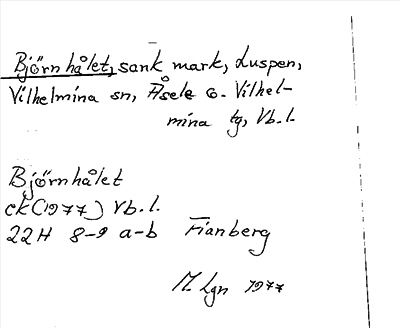 Björnhålet, sank mark, Luspen,
Vilhelmina sn, Åsele o. Vilhel-
mina tg, Vb. l.
Björnhålet
ek (1977) Vb. l.
22H 8-9 a-b Fianberg
M Lgn 1977